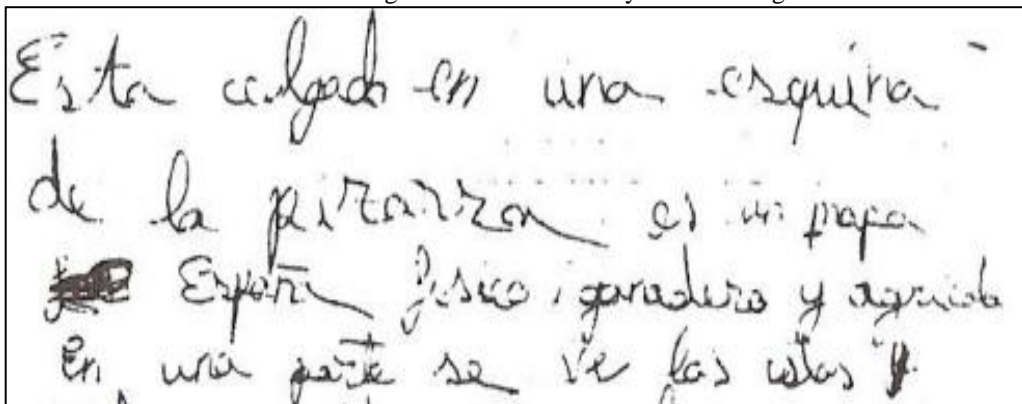 Esta colgado en una esquina
de la pizarra es un mapa
España fisico, ganadero y agricola
En una parte se ve las islas y